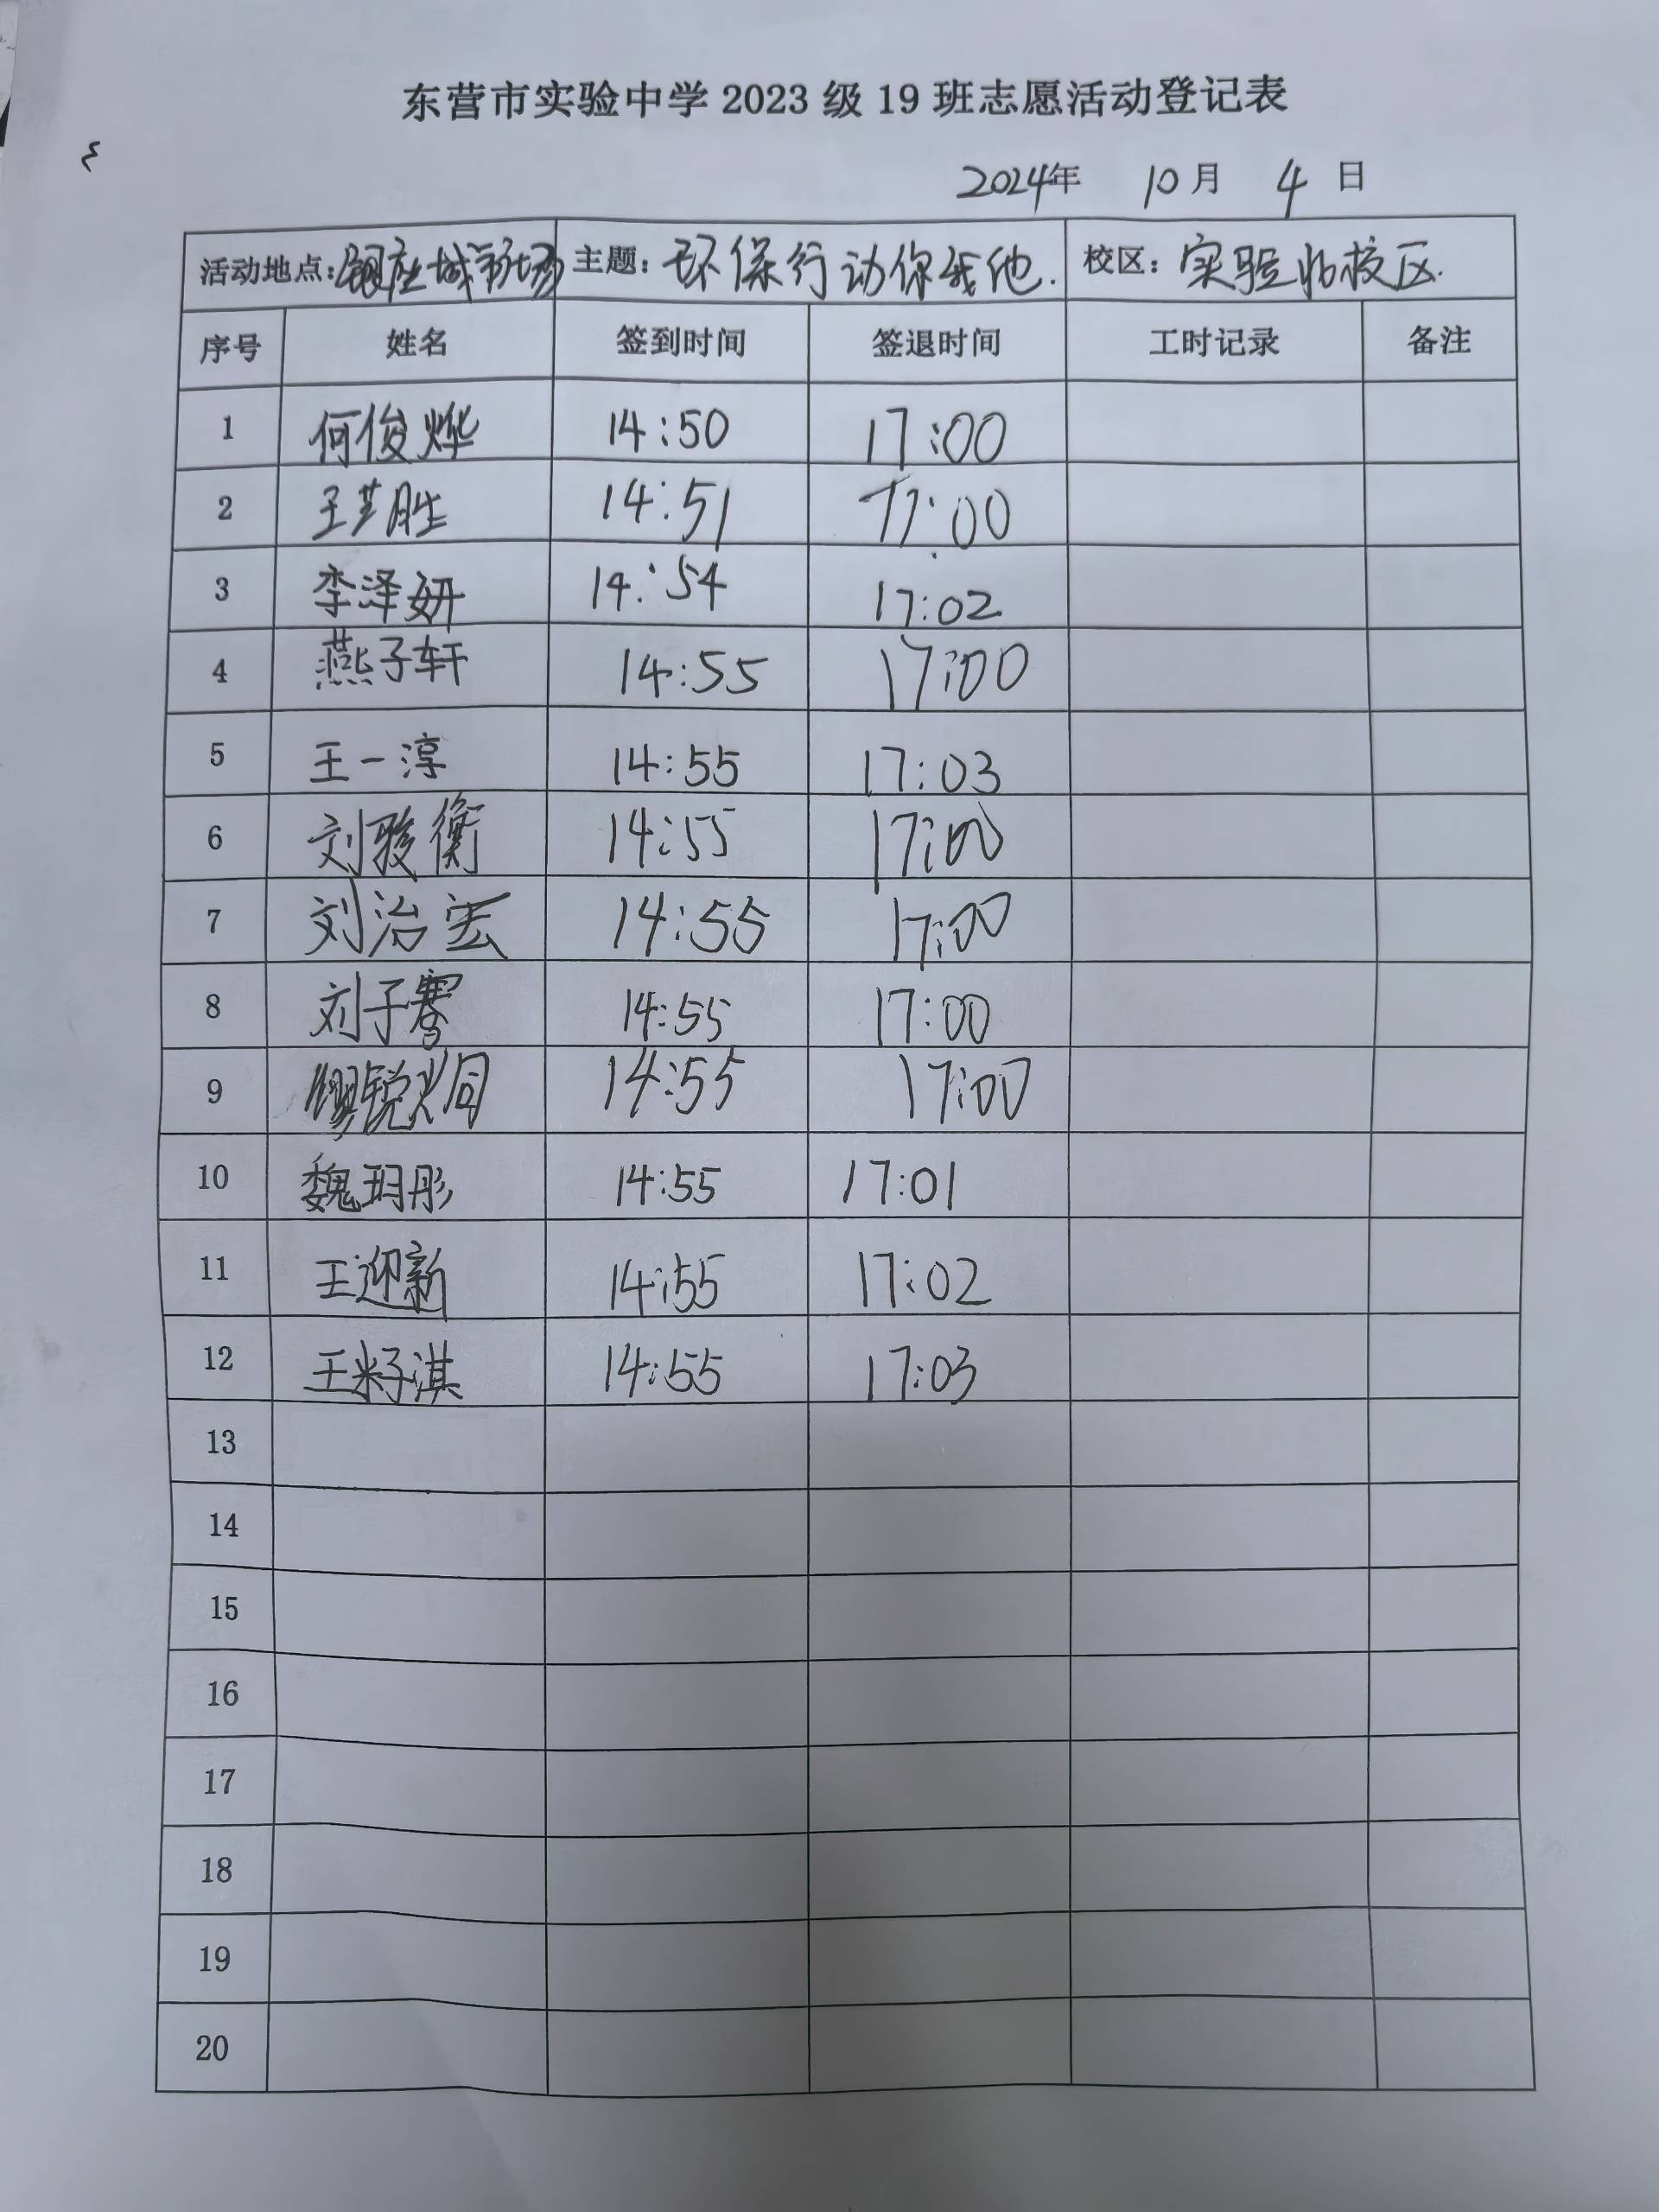 东营市实验中学 2023 级 19 班志愿活动登记表
2024年 10月 4日
活动地点：银座城市广场 主题：环保行动你我他. 校区：实验北校区.
序号 姓名 签到时间 签退时间 工时记录 备注
1 何俊烨 14:50 17:00
2 王艺胜 14:51 17:00
3 李泽妍 14:54 17:02
4 燕子轩 14:55 17:00
5 王一淳 14:55 17:03
6 刘骏衡 14:55 17:00
7 刘治宏 14:55 17:00
8 刘子骞 14:55 17:00
9 14:55 17:00
10 魏玥彤 14:55 17:01
11 王迎新 14:55 17:02
12 王籽淇 14:55 17:03
13
14
15
16
17
18
19
20